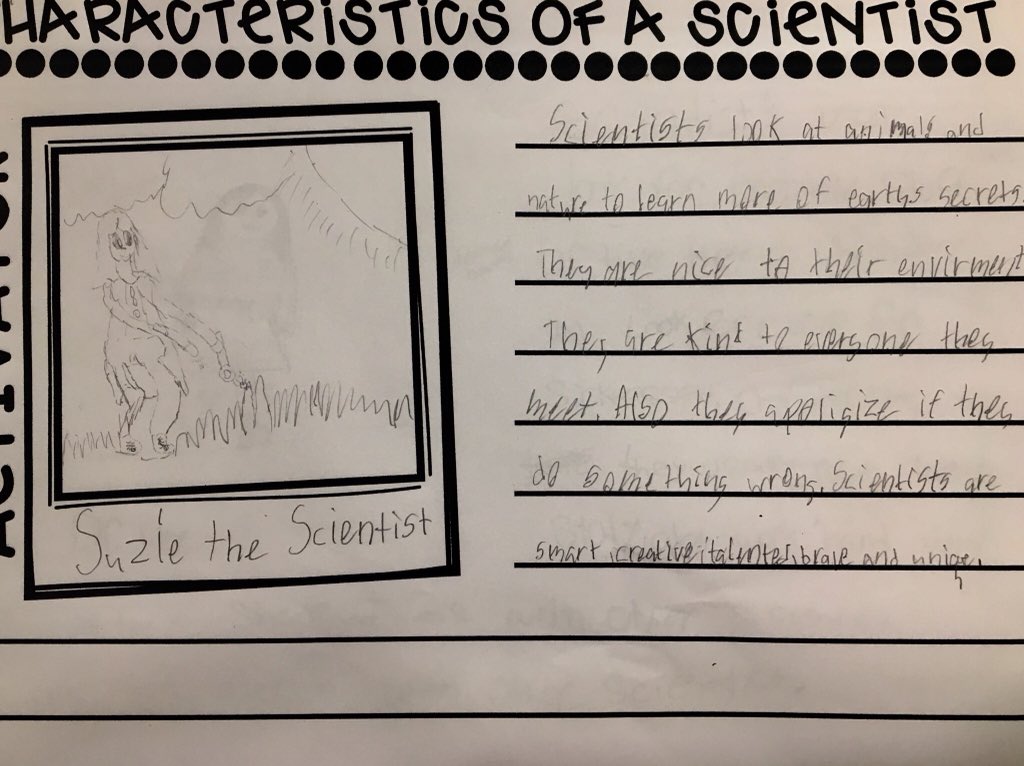 HARACTERISTICS OF A SCIENTIST
ACTIVATOR
Suzie the Scientist
Scientists look at animals and
nature to learn more of earths secrets.
They are nice to their envirment
They are kind to everyone they
meet. Also they apoligize if they
do something wrong. Scientists are
smart, creative, talented, brave and uniqe.